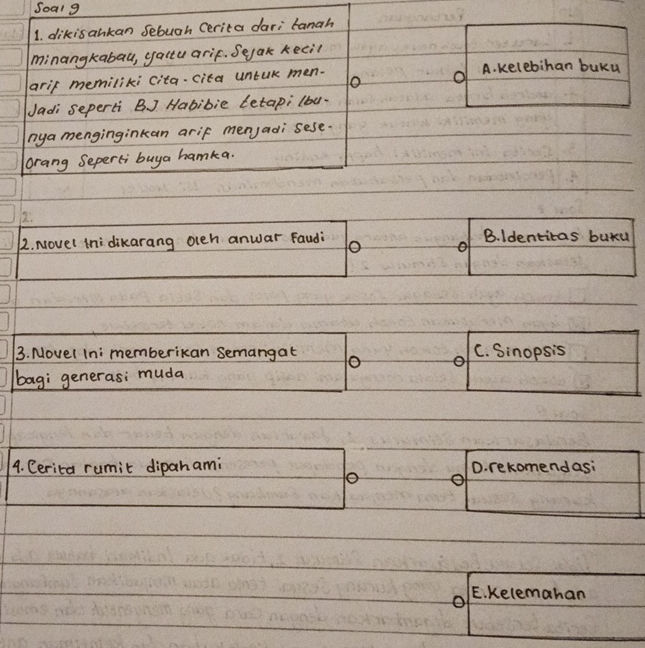 Soal 9
1. dikisahkan Sebuah Cerita dari tanah
minangkabau, yaitu arif. Sejak kecil
arif memiliki Cita-cita untuk men-
Jadi seperti BJ Habibie tetapi ibu-
nya menginginkan arif menjadi sese-
orang Seperti buya hamka.
A. kelebihan buku
2.
2. Novel ini dikarang oleh anwar Faudi
B. Identitas buku
3. Novel ini memberikan Semangat
bagi generasi muda
C. Sinopsis
4. Cerita rumit dipahami
D. rekomendasi
E. Kelemahan